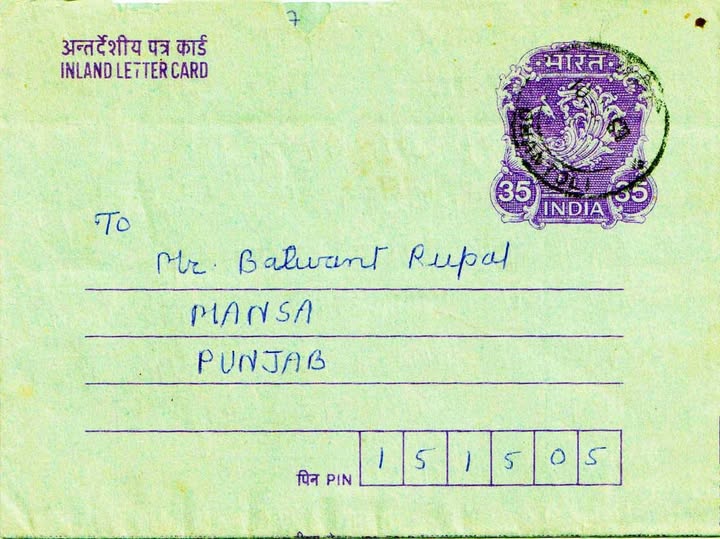 7
अन्तर्देशीय पत्र कार्ड
INLAND LETTER CARD
भारत
35 INDIA 35
To
Mr. Balwant Rupal
MANSA
PUNJAB
पिन PIN 151505